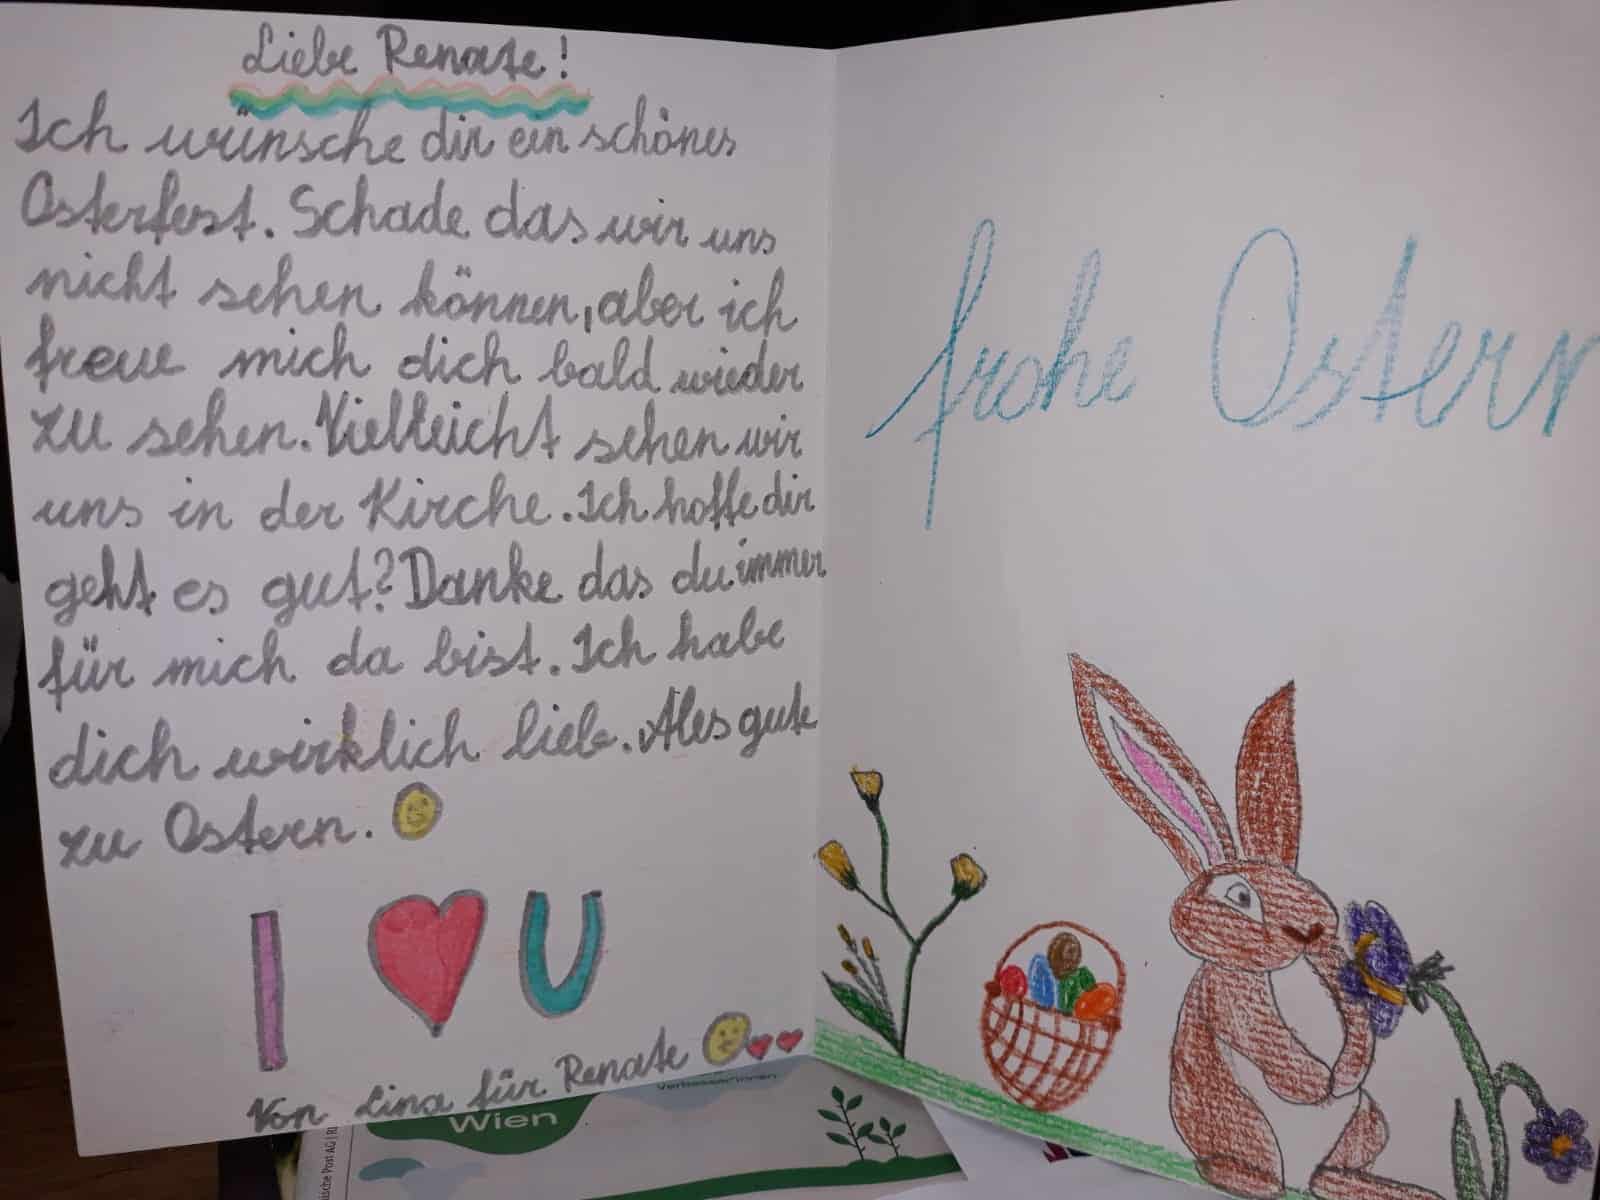 Liebe Renate!
Ich wünsche dir ein schönes
Osterfest. Schade das wir uns
nicht sehen können, aber ich
freue mich dich bald wieder
zu sehen. Vielleicht sehen wir
uns in der Kirche. Ich hoffe dir
geht es gut? Danke das du immer
für mich da bist. Ich habe
dich wirklich lieb. Alles gute
zu Ostern.
I ♥ U
Von Lina für Renate
frohe Ostern
Wien
Post AG